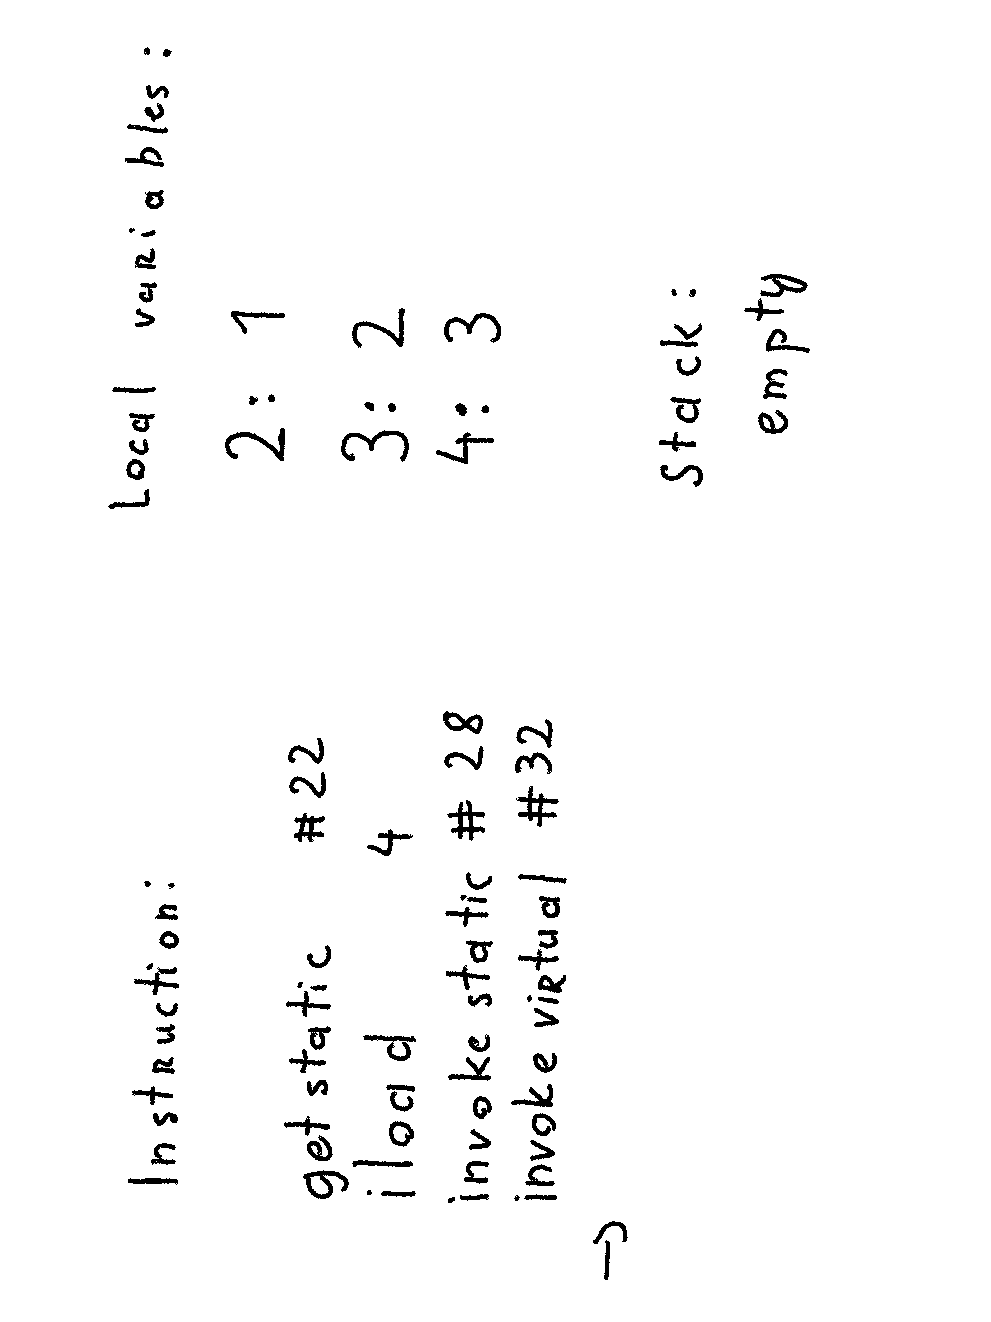 Instruction:
get static #22
iload 4
invoke static # 28
invoke virtual #32
→
Local variables:
2: 1
3: 2
4: 3
Stack:
empty